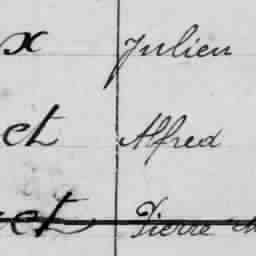 x Julien
et Alfred
et Pierre